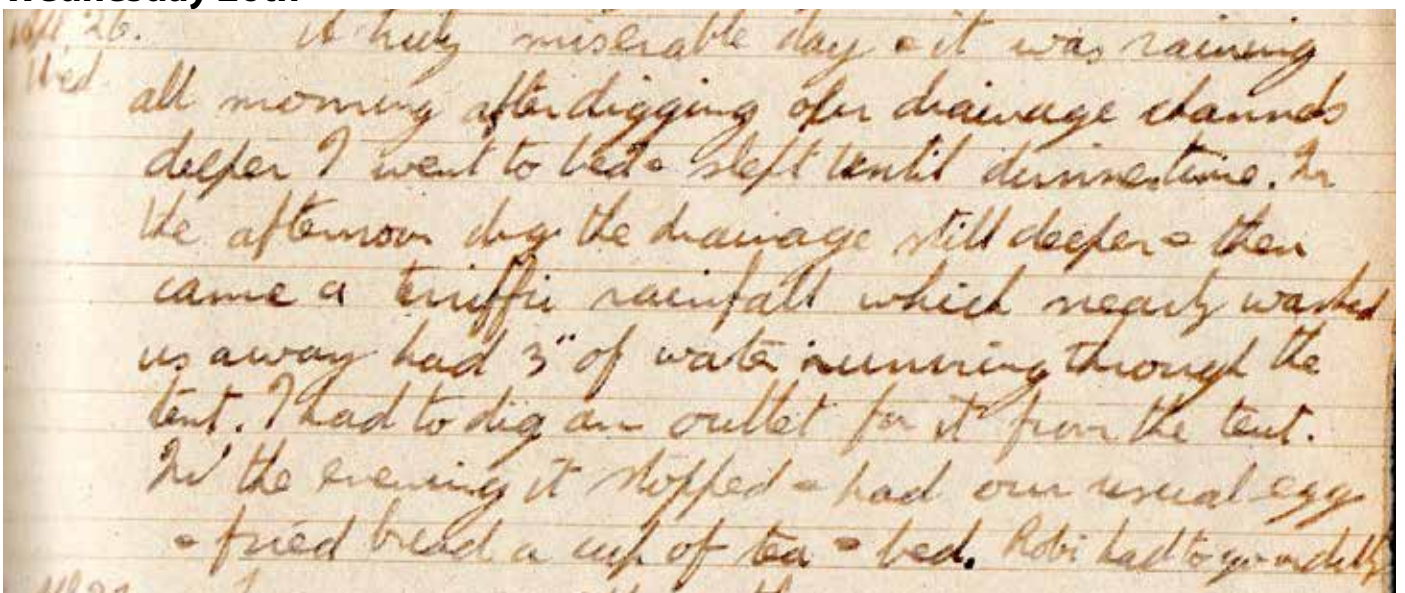 Wednesday 26th
26. A truly miserable day & it was raining
Wed. all morning after digging our drainage channels
deeper I went to bed & slept until dinnertime. In
the afternoon dug the drainage still deeper & then
came a teriffic rainfall which nearly washed
us away had 3" of water running through the
tent. I had to dig an outlet for it from the tent.
In the evening it stopped & had our usual egg
& fried bread a cup of tea & bed. Robi had to go on duty